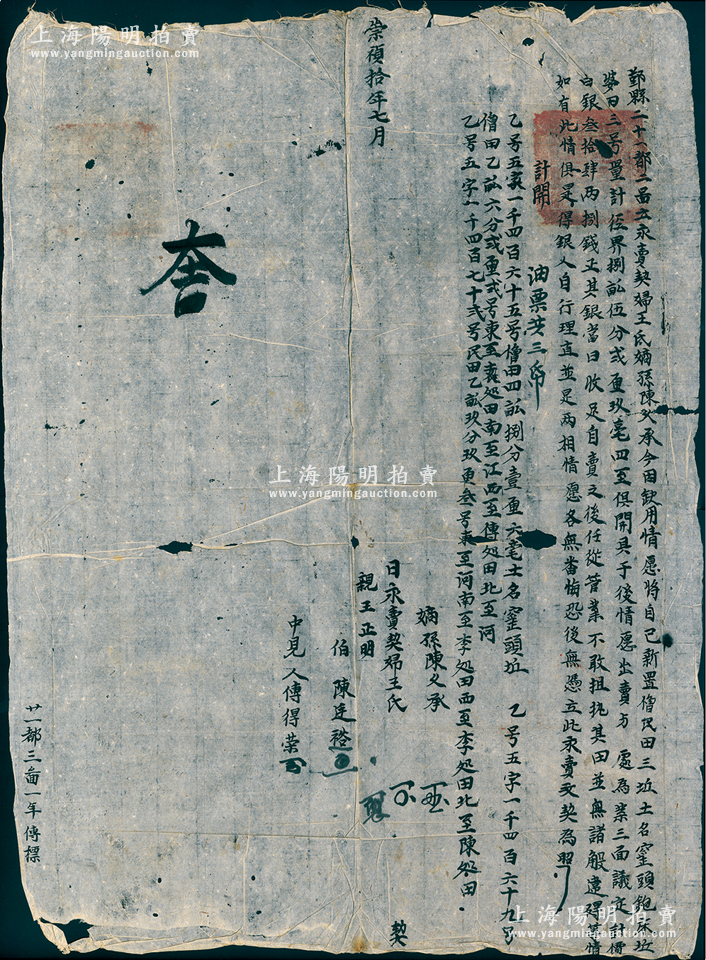 鄞縣二十一都三啚立永賣契婦王氏嫡孫陳文承今因缺用情愿將自己新置僧民田三坵土名窰頭鮑家坵
婆田三号量計徑界捌畝伍分弍厘玖毫四至俱開具于後情愿出賣与 處為業三面議定計價
白銀叁拾肆两捌錢正其銀當日收足自賣之後任從管業不敢阻执其田並無諸般違碍等情
如有此情俱是得銀人自行理直並是两相情愿各無畨悔恐後無憑立此永賣文契為照
計開 油票共三帋
乙号五字一千四百六十五号僧田四畝捌分壹厘六毫土名窰頭坵 乙号五字一千四百六十九号
僧田乙畝六分弍厘弍号東至袁処田南至江西至傅処田北至河
乙号五字一千四百七十弍号民田乙畝玖分玖厘叁号東至河南至李処田西至李処田北至陳処田
崇禎拾年七月 日永賣契婦王氏
嫡孫陳文承
親王正明
伯 陳廷裕
中見人傅得榮
契
廿一都三啚一年傅標
上海陽明拍賣
www.yangmingauction.com
上海陽明拍賣
www.yangmingauction.com
上海陽明拍賣
www.yangmingauction.com